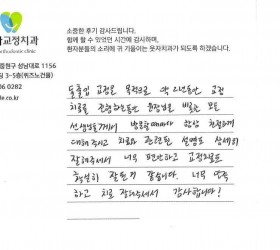 소중한 후기 감사드립니다.
함께 할 수 있었던 시간에 감사하며,
환자분들의 소리에 귀 기울이는 뜻자치과가 되도록 하겠습니다.
교정치과
orthodontic clinic
성남대로 1156
3~5층(위즈노건물)
06 0282
fe.co.kr
돌출입 교정을 목적으로 약 2년동안 교정
치료를 진행하면서 원장님을 비롯한 모든
선생님들께서 방문할때마다 항상 친절하게
대해주시고 치료와 관련된 설명도 상세히
잘해주셔서 너무 편안하고 교정치료도
확실히 잘된거 같습니다. 너무 만족
하고 치료 잘해주셔서 감사합니다!